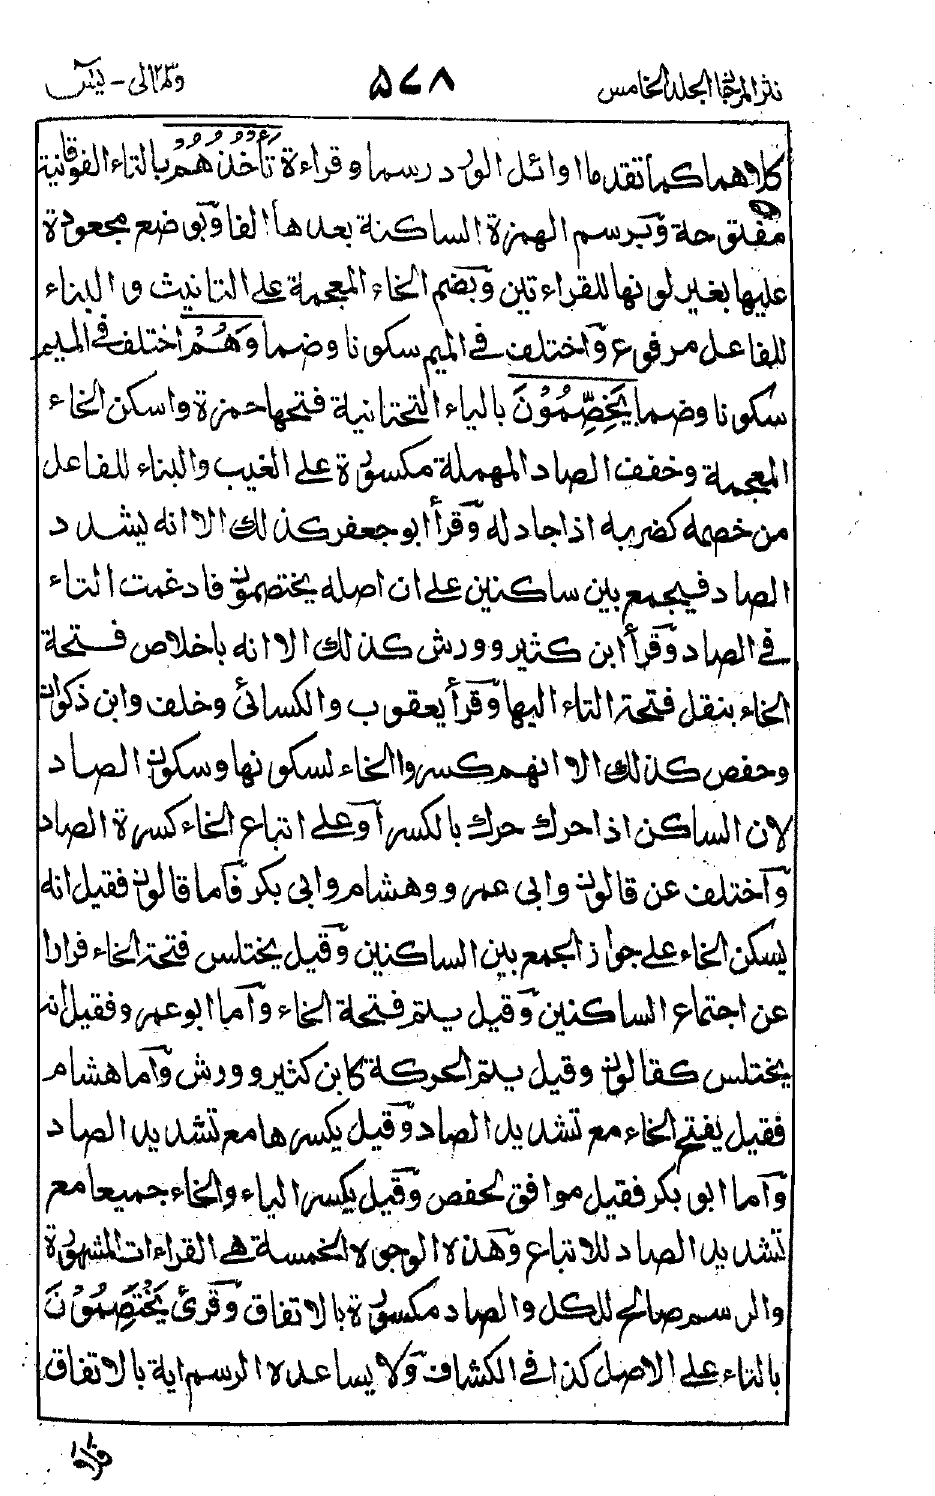 نثر المرجان المجلد الخامس ۵۶۸ ومالی - یٰسٓ
كلاهما كما تقدما اوائل الورد رسما و قراءة تَأْخُذُهُمْ بالتاء الفوقانية
مفتوحة وَبرسم الهمزة الساكنة بعدها الفا وَبوضع مجعودة
عليها بغير لونها للقراءتين وَبضم الخاء المعجمة على التانيث و البناء
للفاعل مرفوع وَاختلف فى الميم سكونا وضما وَهُمْ اختلف فى الميم
سكونا وضما يَخِصِّمُوْنَ بالياء التحتانية فتحها حمزة واسكن الخاء
المعجمة وخفف الصاد المهملة مكسورة على الغيب والبناء للفاعل
من خصمه كضربه اذا جادله وَقرأ ابو جعفر كذلك الا انه يشدد
الصاد فيجمع بين ساكنين على ان اصله يختصمون فادغمت التاء
فى الصاد وَقرأ ابن كثير وورش كذلك الا انه باخلاص فتحة
الخاء بنقل فتحة التاء اليها وَقرأ يعقوب والكسائى وخلف وابن ذكوان
وحفص كذلك الا انهم كسروا الخاء لسكونها وسكون الصاد
لان الساكن اذا حرك حرك بالكسر اَوعلى اتباع الخاء كسرة الصاد
وَاختلف عن قالون وابى عمرو وهشام وابى بكر فَاما قالون فقيل انه
يسكن الخاء على جواز الجمع بين الساكنين وَقيل يختلس فتحة الخاء فرارا
عن اجتماع الساكنين وَقيل يتم فتحة الخاء وَاما ابو عمرو فقيل انه
يختلس كقالون وقيل يتم الحركة كابن كثير وورش وَاما هشام
فقيل يفتح الخاء مع تشديد الصاد وَقيل يكسرها مع تشديد الصاد
وَاما ابو بكر فقيل موافق لحفص وَقيل يكسر الياء والخاء جميعا مع
تشديد الصاد للاتباع وَهذه الوجوه الخمسة هى القراءات المشهورة
والرسم صالح للكل والصاد مكسورة بالاتفاق وَقرئ يَخْتَصِمُوْنَ
بالتاء على الاصل كذا فى الكشاف وَلا يساعده الرسم اية بالاتفاق